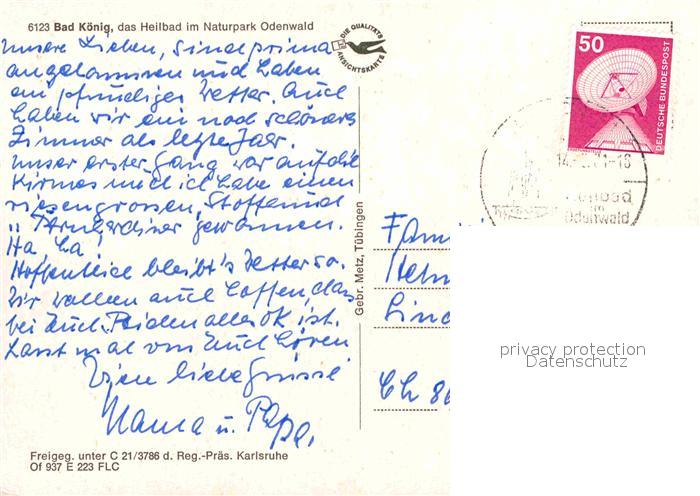 6123 Bad König, das Heilbad im Naturpark Odenwald
DIE QUALITÄTS
ANSICHTSKARTE
50
DEUTSCHE BUNDESPOST
Unsere Lieben, Sind prima
angekommen und haben
ein pfundiges Wetter. Auch
haben wir ein noch schöneres
Zimmer als letztes Jahr.
Unser erster Gang war auf die
Kirmes und ich habe einen
riesengrossen, Stoffhund
„ Bernhardiner gewonnen.
Ha, ha!
Hoffentlich bleibt's Wetter so.
Wir wollen auch hoffen, dass
bei Euch Beiden alles OK ist.
Lasst mal von Euch hören
Viele liebe Grüsse
Mama u. Papa.
Gebr. Metz, Tübingen
-16
Odenwald
Fam
CH 86
privacy protection
Datenschutz
Freigeg. unter C 21/3786 d. Reg.-Präs. Karlsruhe
Of 937 E 223 FLC